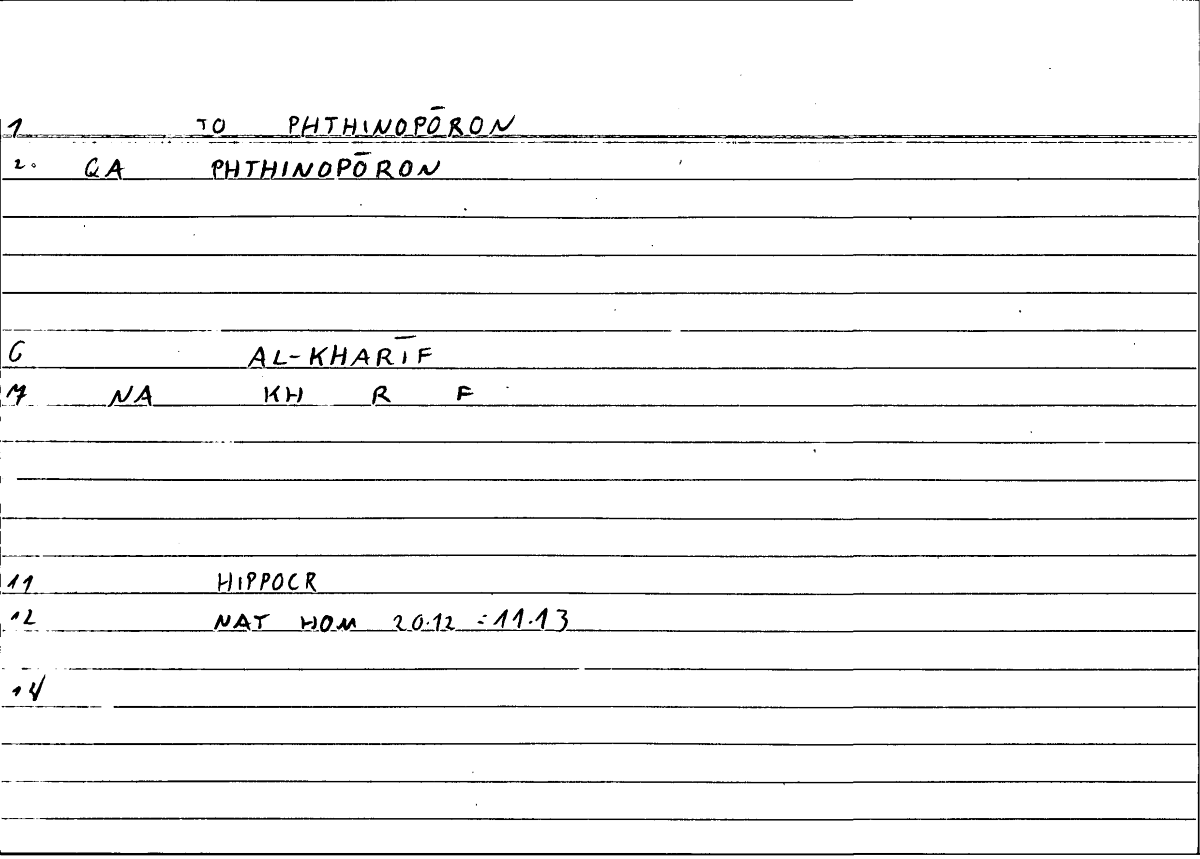 1 TO PHTHINOPŌRON
2. QA PHTHINOPŌRON
6 AL-KHARĪF
7 NA KH R F
11 HIPPOCR
12 NAT HOM 20.12 = 11.13
14